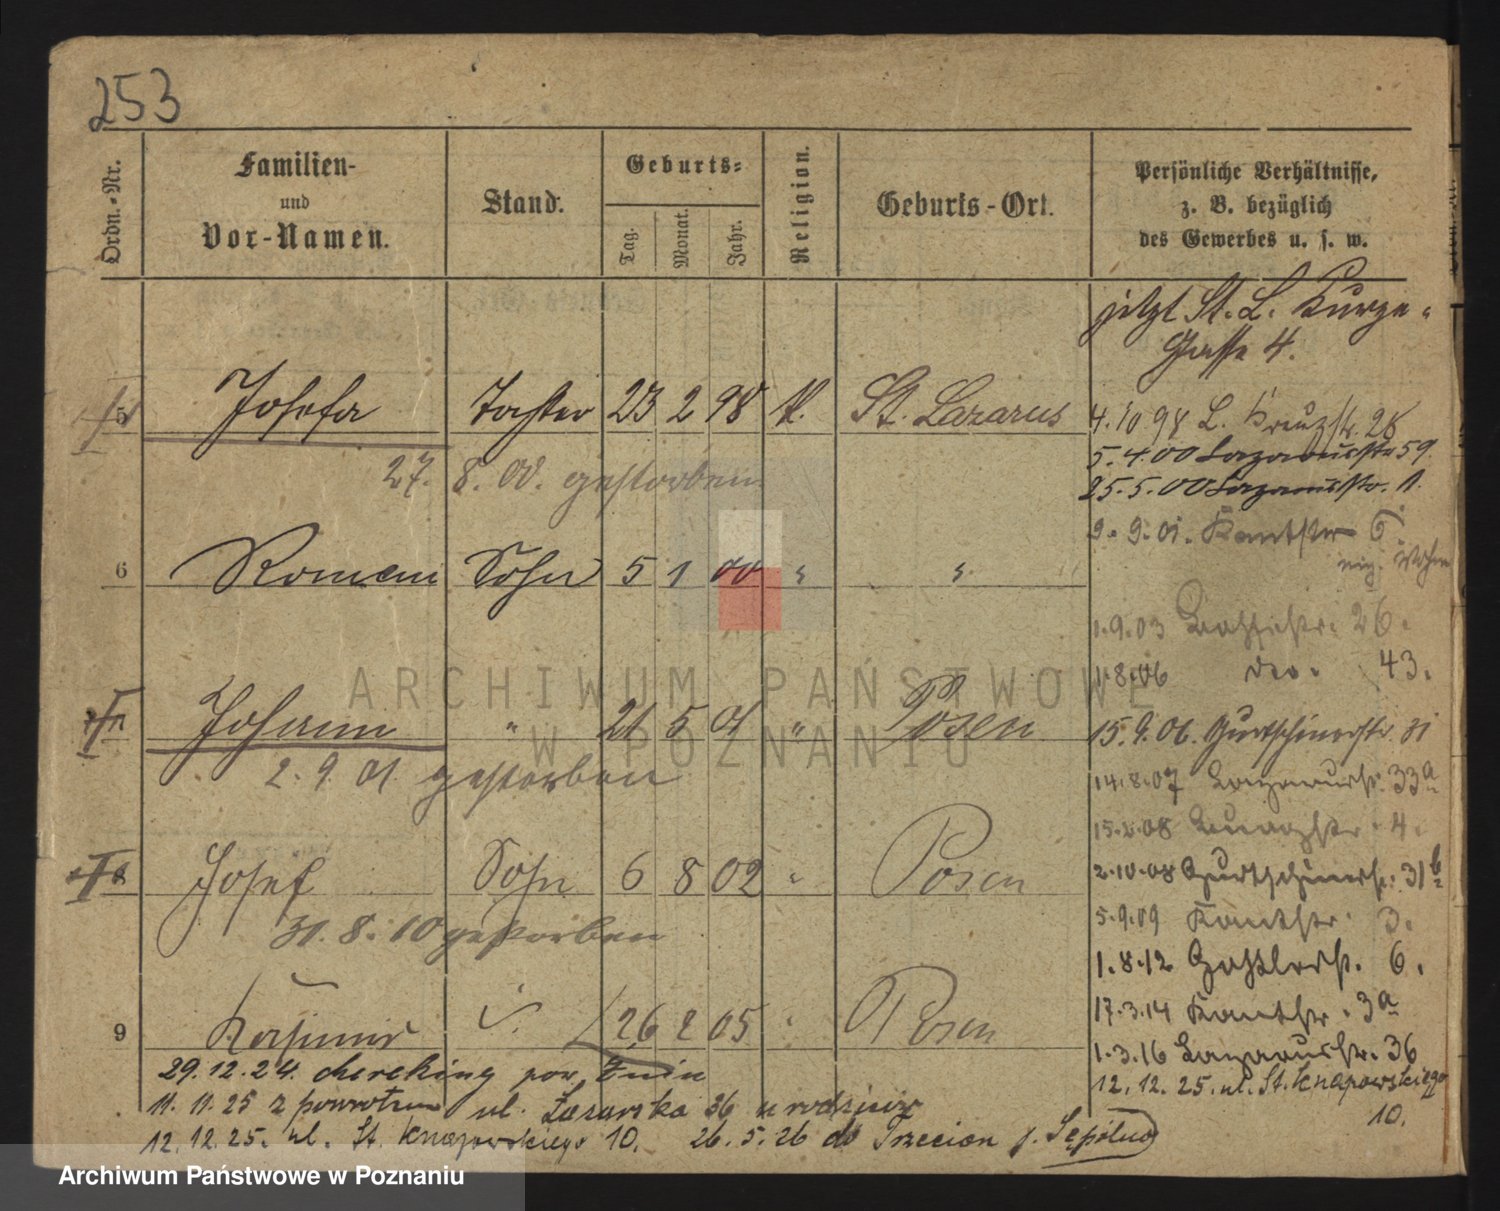 253
Ordn.-Nr.
Familien-
und
Vor-Namen.
Stand.
Geburts-
Tag.
Monat.
Jahr.
Religion.
Geburts-Ort.
Persönliche Verhältnisse,
z. B. bezüglich
des Gewerbes u. s. w.
jetzt St. L. Kurze-
Gasse 4.
5 Josefa Tochter 23 2 98 k. St. Lazarus
4.10.98 L. Kreuzstr. 28
5.4.00 Lazarusstr 59.
27. 8. 00. gestorben
25.5.00 Lazarusstr. 1.
9.9.01. Kantstr 6.
6 Roman Sohn 5 1 00 " "
1.9.03 26.
1.8.06 do. 43.
Johann " 21 5 01 " Posen
15.9.06. Gurtschinerstr. 31
2. 9. 01. gestorben
14.8.07 Lazarusstr. 33a
15.2.08 4.
8 Josef Sohn 6 8 02 " Posen
2.10.08 Gurtschinerstr. 31b
31. 8. 10 gestorben
5.9.09 Kantstr. 3.
1.8.12 6.
17.3.14 Kantstr. 3a
9 Kasimir S. 26 2 05 " Posen
1.3.16 Lazarusstr. 36
29.12.24. pow. Żnin
12.12.25. ul. St. Knapowskiego
10.
11. 11. 25 z powrotem ul. Łazarska 36 u rodziców
12.12.25. ul. St. Knapowskiego 10. 26.5.26 do Trzecian p. Sępólno
ARCHIWUM PAŃSTWOWE
W POZNANIU
Archiwum Państwowe w Poznaniu